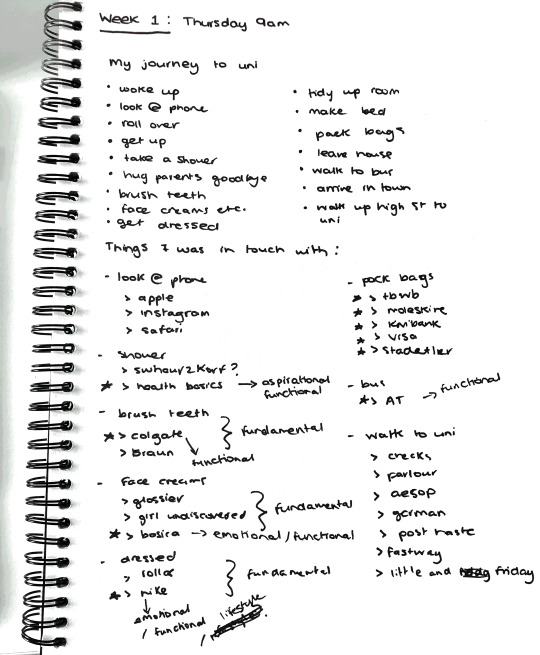 Week 1: Thursday 9am
My journey to uni
• woke up
• look @ phone
• roll over
• get up
• take a shower
• hug parents goodbye
• brush teeth
• face creams etc.
• get dressed
• tidy up room
• make bed
• pack bags
• leave house
• walk to bus
• arrive in town
• walk up high st to
uni
Things I was in touch with:
- look @ phone
> apple
> instagram
> safari
- shower
* > health basics → aspirational
functional
- brush teeth
* > colgate
> Braun
} fundamental
functional
- face creams
> glossier
> girl undiscovered
} fundamental
* > bosira → emotional / functional
- dressed
> rollas
* > nike
} fundamental
emotional
/ functional
/ lifestyle
- pack bags
* > tbwb
* > moleskine
* > kiwibank
* > visa
* > staedtler
- bus
* > AT → functional
- walk to uni
> checks
> parlour
> aesop
> german
> post haste
> fastway
> little and friday